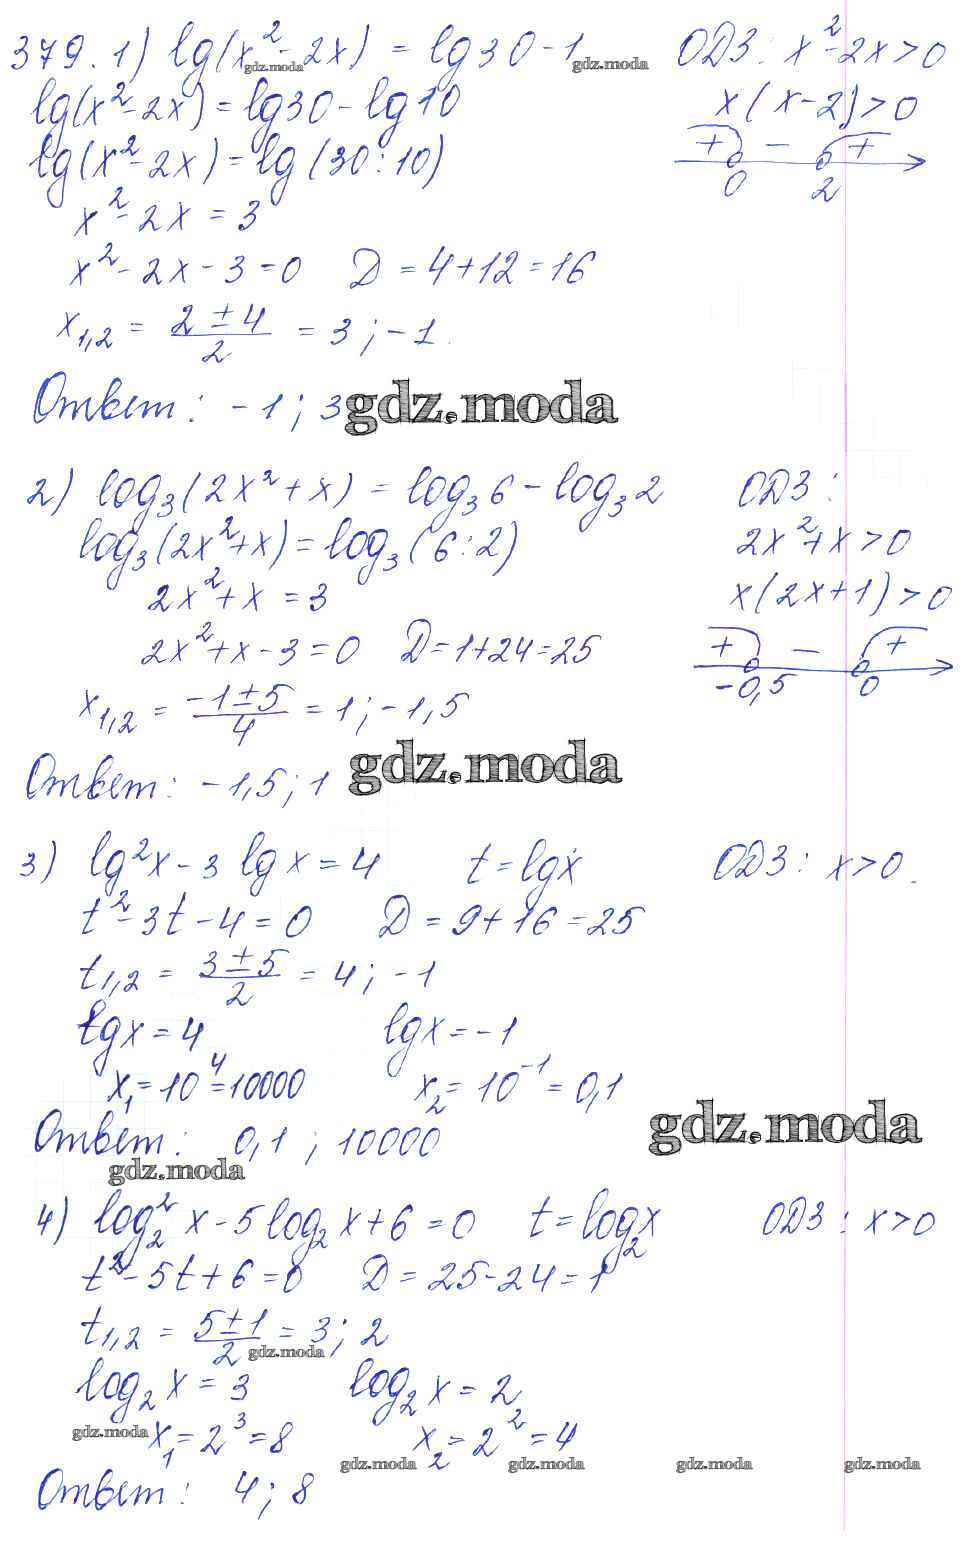 379. 1) lg(x² - 2x) = lg30 - 1 ОДЗ: x² - 2x > 0
gdz.moda gdz.moda
lg(x² - 2x) = lg30 - lg10 x(x - 2) > 0
lg(x² - 2x) = lg(30 : 10) + - +
0 2
x² - 2x = 3
x² - 2x - 3 = 0 D = 4 + 12 = 16
x₁,₂ = (2 ± 4)/2 = 3; -1.
Ответ: -1; 3 gdz.moda
2) log₃(2x² + x) = log₃6 - log₃2 ОДЗ:
log₃(2x² + x) = log₃(6 : 2) 2x² + x > 0
2x² + x = 3 x(2x + 1) > 0
2x² + x - 3 = 0 D = 1 + 24 = 25 + - +
-0,5 0
x₁,₂ = (-1 ± 5)/4 = 1; -1,5
Ответ: -1,5; 1 gdz.moda
3) lg²x - 3 lgx = 4 t = lgx ОДЗ: x > 0.
t² - 3t - 4 = 0 D = 9 + 16 = 25
t₁,₂ = (3 ± 5)/2 = 4; -1
lgx = 4 lgx = -1
x₁ = 10⁴ = 10000 x₂ = 10⁻¹ = 0,1
Ответ: 0,1; 10000 gdz.moda
gdz.moda
4) log₂²x - 5log₂x + 6 = 0 t = log₂x ОДЗ: x > 0
t² - 5t + 6 = 0 D = 25 - 24 = 1
t₁,₂ = (5 ± 1)/2 = 3; 2
gdz.moda
log₂x = 3 log₂x = 2
gdz.moda x₁ = 2³ = 8 x₂ = 2² = 4
gdz.moda gdz.moda gdz.moda gdz.moda
Ответ: 4; 8